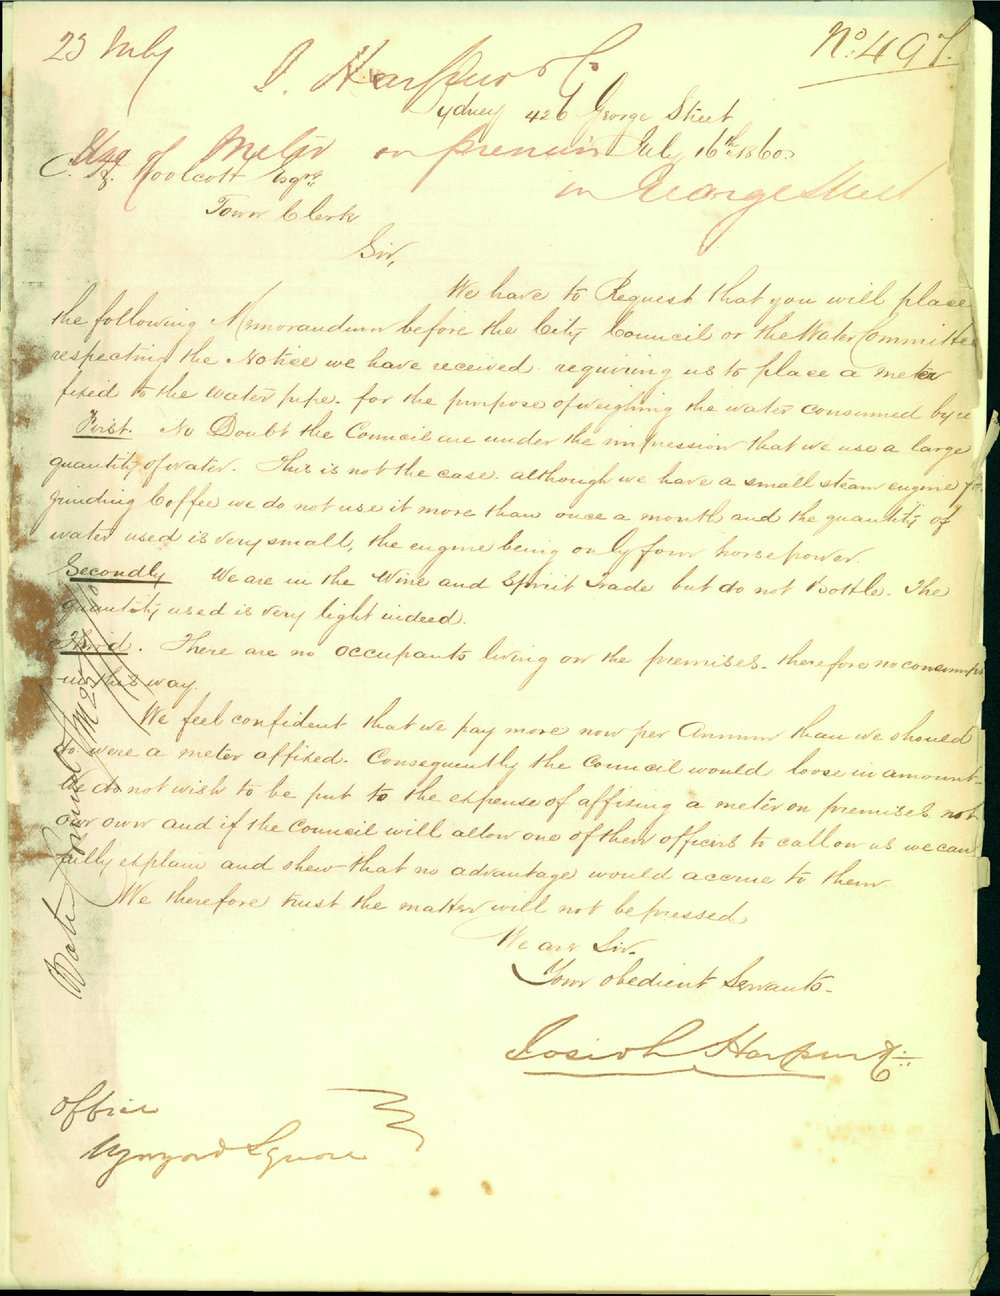 23 July
No. 497.
J. Harpur & Co.
Sydney 426 George Street
July 16th 1860.
Use of Meter on premises
in George Street
C. H. Woolcott Esqre.
Town Clerk
Sir,
We have to Request that you will place
the following Memorandum before the City Council or the Water Committee
respecting the Notice we have received requiring us to place a meter
fixed to the water pipe. for the purpose of weighing the water consumed by us
First. No Doubt the Council are under the impression that we use a large
quantity of water. This is not the case. although we have a small steam engine for
grinding Coffee we do not use it more than once a month and the quantity of
water used is very small, the engine being only four horse power.
Secondly We are in the Wine and Spirit Trade but do not Bottle. The
quantity used is very light indeed.
Third. There are no occupants living on the premises. therefore no
in this way.
We feel confident that we pay more now per Annum than we should
do were a meter affixed. Consequently the Council would loose in amount.
We do not wish to be put to the expense of affixing a meter on premises not
our own and if the Council will allow one of their officers to call on us we can
fully explain and shew that no advantage would accrue to them.
We therefore trust the matter will not be pressed
We are Sir.
Your obedient Servants.
Josiah Harpur & Co.
Office
Wynyard Square
Water